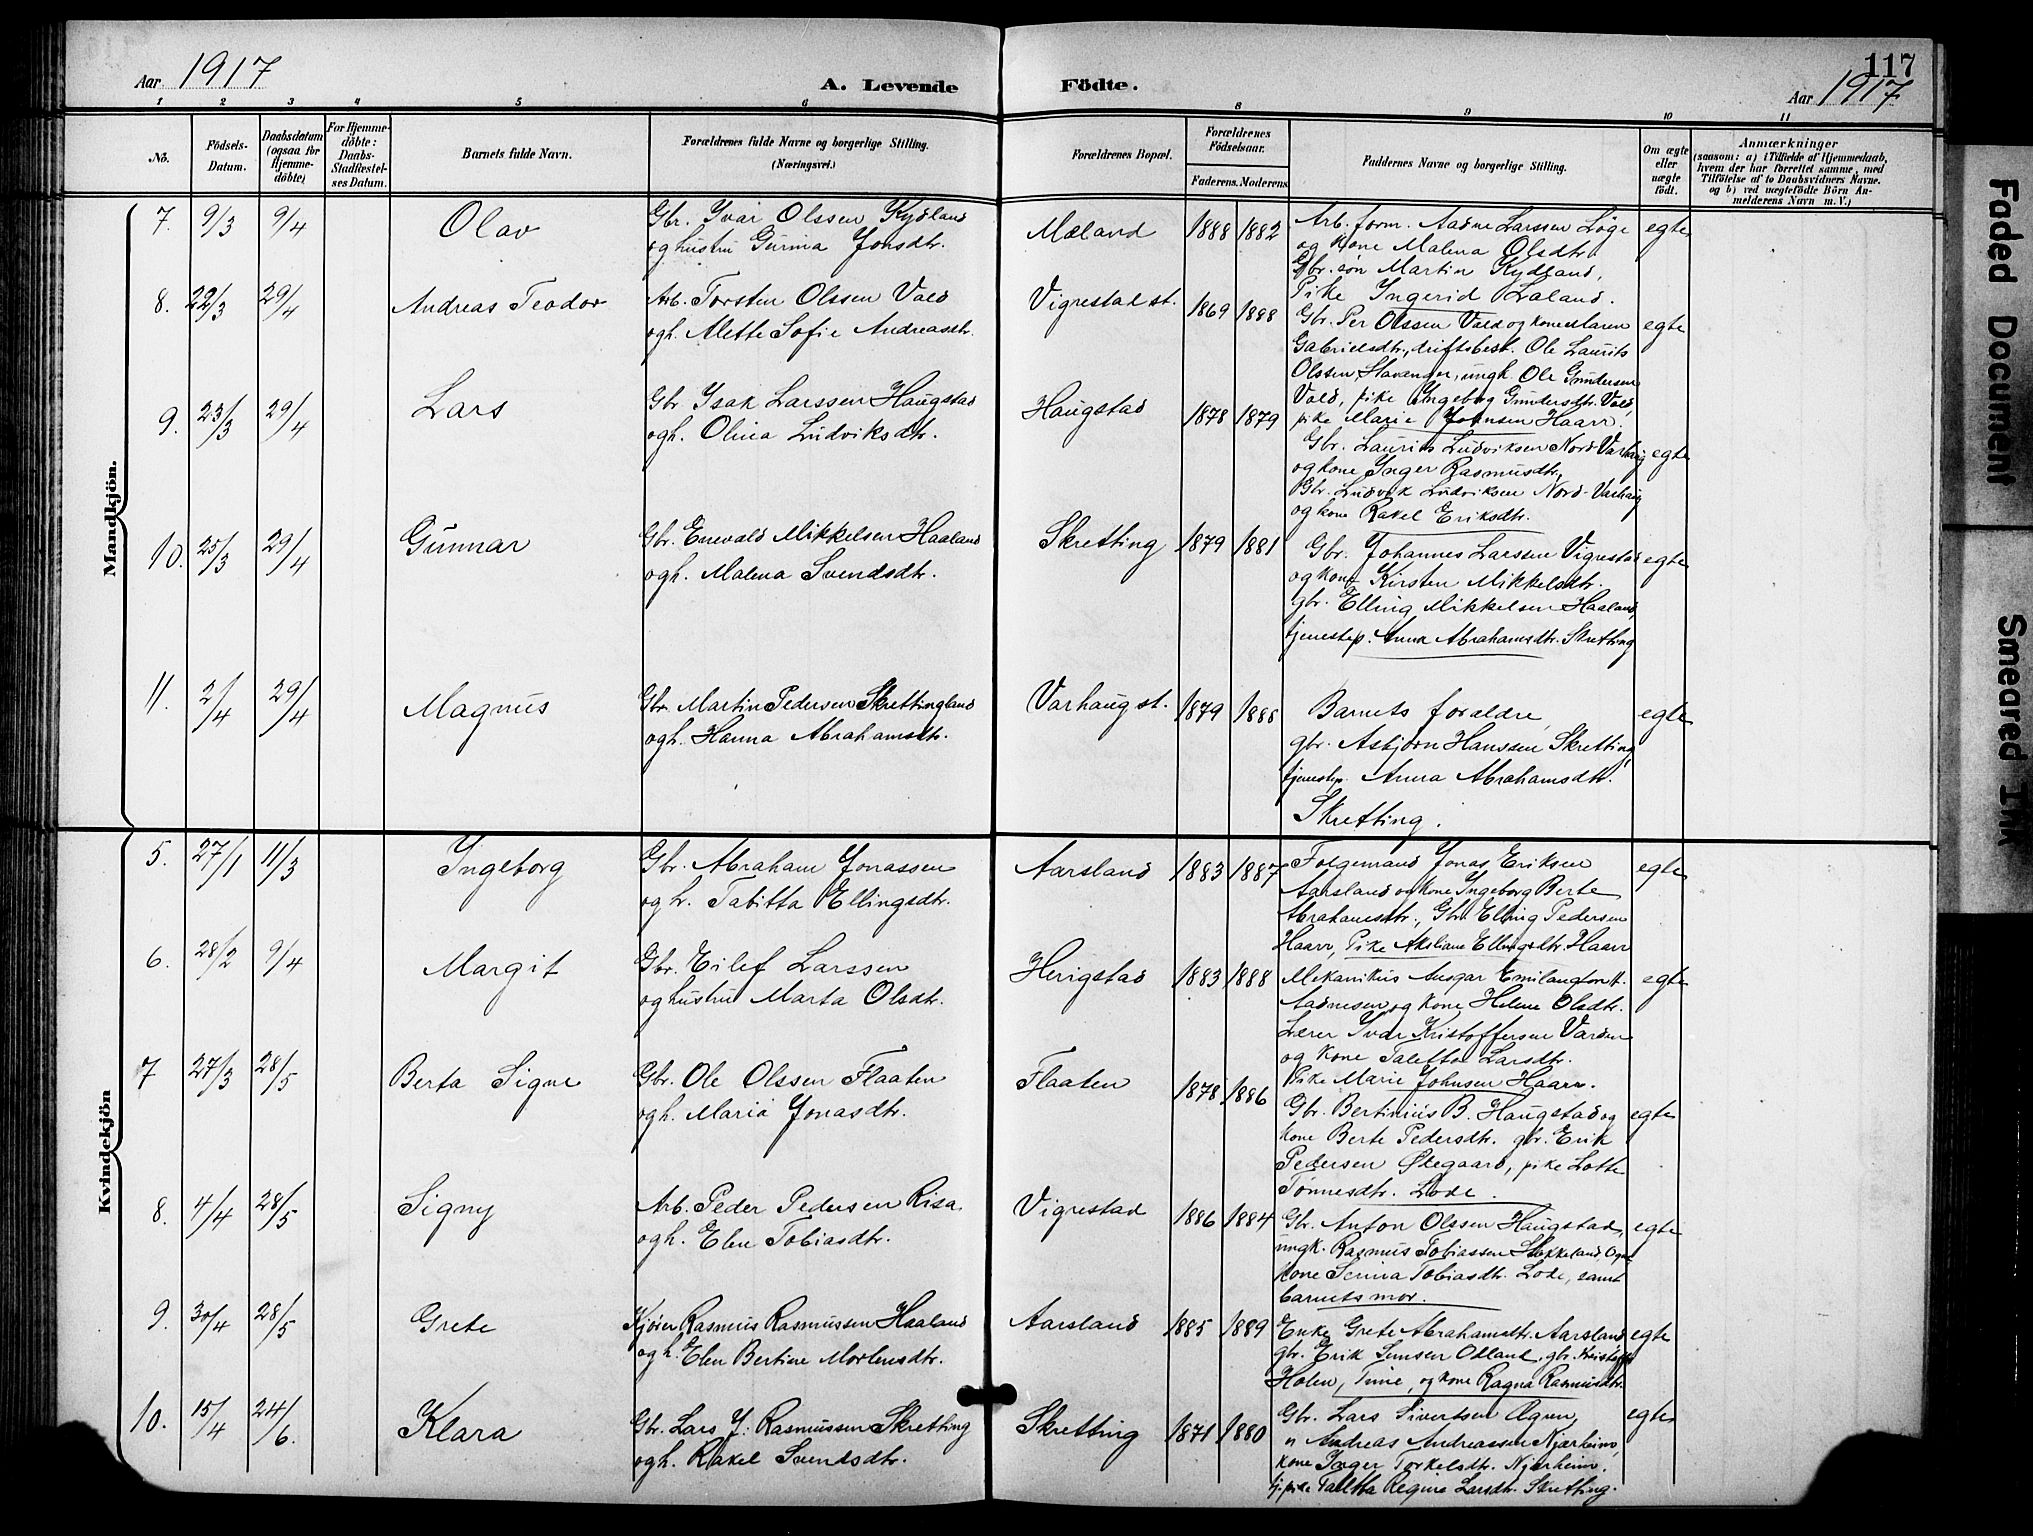 Aar 1917
A. Levende
Födte.
117
Aar 1917
1 2 3 4 5 6 8 9 10 11
No.
Födsels-
Datum.
Daabsdatum
(ogsaa for
Hjemme-
döbte)
For Hjemme-
döbte:
Daabs-
Stadfæstel-
ses Datum.
Barnets fulde Navn.
Forældrenes fulde Navne og borgerlige Stilling.
(Næringsvei.)
Forældrenes Bopæl.
Forældrenes
Födselsaar.
Faderens. Moderens.
Faddernes Navne og borgerlige Stilling.
Om ægte
eller
uægte
født.
Anmærkninger
(saasom: a) i Tilfælde af Hjemmedaab,
hvem der har forrettet samme, med
Tilföielse af to Daabsvidners Navne.
og b) ved uægtefödte Börn An-
melderens Navn m.V.)
Mandkjön.
7. 9/3 9/4 Olav
Gbr. Ivar Olssen Kydland
og hustru Gurina Jonsdtr.
Mæland 1888 1882
Arb. form. Aadne Larssen Löge
og kone Malena Olsdtr.
Gbr. søn Martin Kydland,
Pike Ingerid Laland.
egte
8. 22/3 29/4 Andreas Teodor
Arb. Torsten Olssen Vald
og h. Alette Sofie Andreasdtr.
Vigrestad st. 1869 1888
Gbr. Per Olssen Vald og kone Maren
Gabrielsdtr., driftsbest. Ole Laurits
Olssen, Stavanger, ungk. Ole Gundersen
Vald, pike Ingeborg Gundersdtr. Vald,
pike Marie Johnsen Haarr.
egte
9. 23/3 29/4 Lars
Gbr Isak Larssen Haugstad
og h. Olina Ludviksdtr.
Haugstad 1878 1879
Gbr. Laurits Ludviksen Nord-Varhaug
og kone Inger Rasmusdtr,
Gbr. Ludvik Ludviksen Nord-Varhaug
og kone Rakel Eriksdtr.
egte
10. 25/3 29/4 Gunnar
Gbr. Enevald Mikkelsen Haaland
og h. Malena Svendsdtr.
Skretting 1879 1881
Gbr. Johannes Larssen Vigrestad
og kone Kirsten Mikkelsdtr.
gbr. Elling Mikkelsen Haaland,
tjenestep. Anna Abrahamsdtr. Skretting
egte
11. 2/4 29/4 Magnus
Gbr. Martin Pedersen Skrettingland
og h. Hanna Abrahamsdtr.
Varhaug st. 1879 1888
Barnets foraldre,
gbr. Asbjørn Hanssen Skretting,
tjenestep. Anna Abrahamsdtr.
Skretting.
egte
Kvindekjön
5. 27/1 11/3 Ingeborg
Gbr. Abraham Jonassen
og h. Tabitta Ellingsdtr.
Aarsland 1883 1887
Folgemand Jonas Eriksen
Aarsland og kone Ingeborg Berte
Abrahamsdtr., Gbr Elling Pedersen
Haarr, Pike Ellingsdtr. Haarr
egte
6. 28/2 9/4 Margit
Gbr. Eilef Larssen
og hustru Marta Olsdtr.
Herigstad 1883 1888
Mekanikus Ansgar
Aadnesen og kone Helene Olsdtr.
Lærer Ivar Kristoffersen Varden
og kone Taletta Larsdtr.
Pike Marie Johnsen Haarr.
egte
7 27/3 28/5 Berta Signe
Gbr. Ole Olssen Flaaten
og h. Maria Jonasdtr.
Flaaten 1878 1886
Gbr. Bertinius B. Haugstad og
kone Berte Pedersdtr. gbr. Erik
Pedersen Østegaard, pike Lotte
Tønnesdtr. Lode.
egte
8. 4/4 28/5 Signy
Arb. Peder Pedersen Risa.
og h. Elen Tobiasdtr.
Vigrestad 1886 1884
Gbr. Anton Olssen Haugstad,
ungk. Rasmus Tobiassen Stokkeland,
kone Serina Tobiasdtr. Lode, samt
barnets mor.
egte
9. 30/4 28/5 Grete
Kjører Rasmus Rasmussen Haaland
og h. Elen Bertine Mortensdtr.
Aarsland 1885 1889
Enke Grete Abrahamsdtr. Aarsland
gbr. Erik Simsen Odland, gbr.
Holen, Time, og kone Ragna Rasmusdtr.
egte
10. 15/4 24/6. Klara
Gbr. Lars J. Rasmussen Skretting
og h. Rakel Svendsdtr.
Skretting 1871 1880
Gbr. Lars Sivertsen Ognn,
" Andreas Andreassen Njærheim,
kone Inger Torkelsdtr. Njærheim.
tj. pike Taletta Regine Larsdtr. Skretting.
egte
Faded Document
Smeared Ink